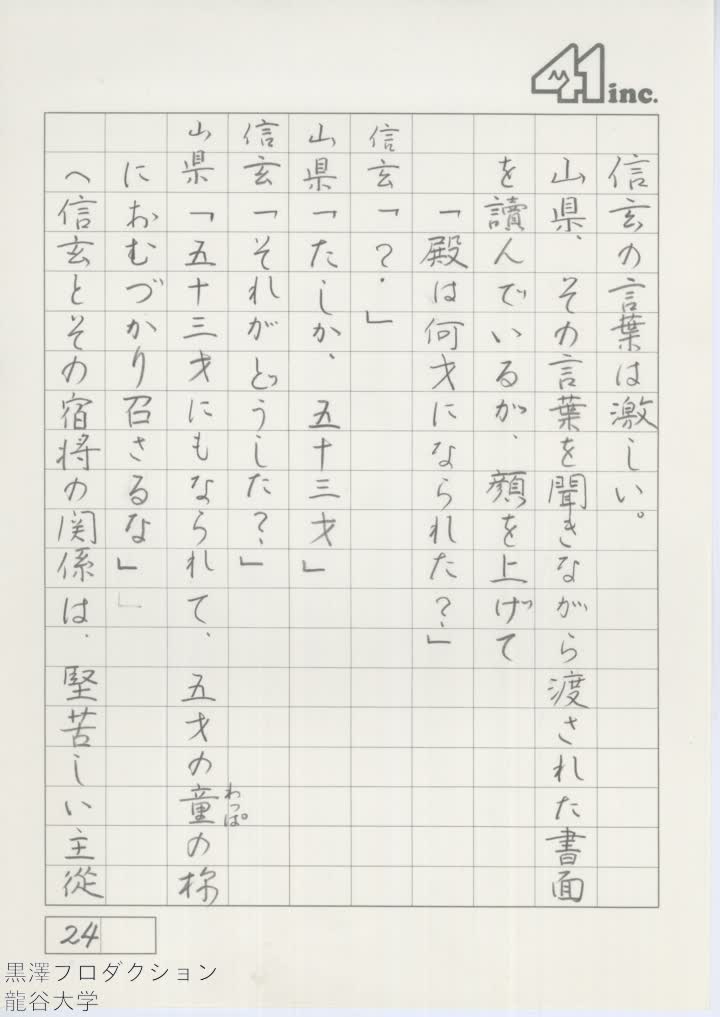 41 inc.
信玄の言葉は激しい。
山県、その言葉を聞きながら渡された書面
を讀んでいるが、顔を上げて
「殿は何才になられた？」
信玄「？・」
山県「たしか、五十三才」
信玄「それがどうした？」
山県「五十三才にもなられて、五才の童の様
わっぱ
におむづかり召さるな」
へ信玄とその宿将の関係は、堅苦しい主從
24
黒澤プロダクション
龍谷大学